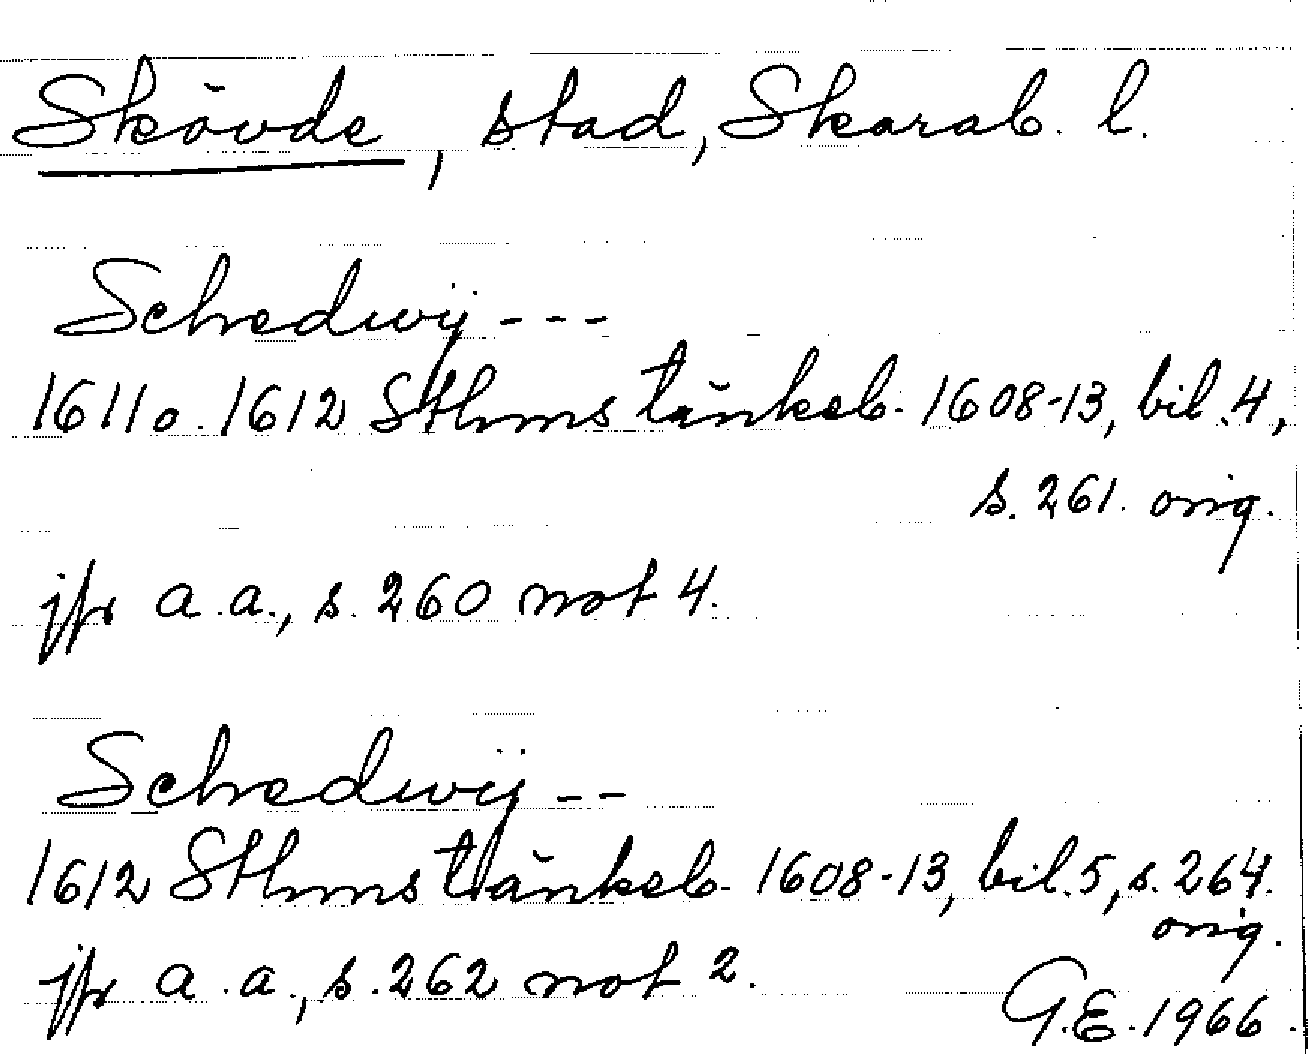 Skövde, stad, Skarab. l.
Schedwij ---
1611 o. 1612 Sthms tänkeb. 1608-13, bil. 4,
s. 261. orig.
jfr a.a., s. 260 not 4.
Schedwij --
1612 Sthms tänkeb. 1608-13, bil. 5, s. 264.
orig.
jfr a.a., s. 262 not 2.
G.E. 1966.